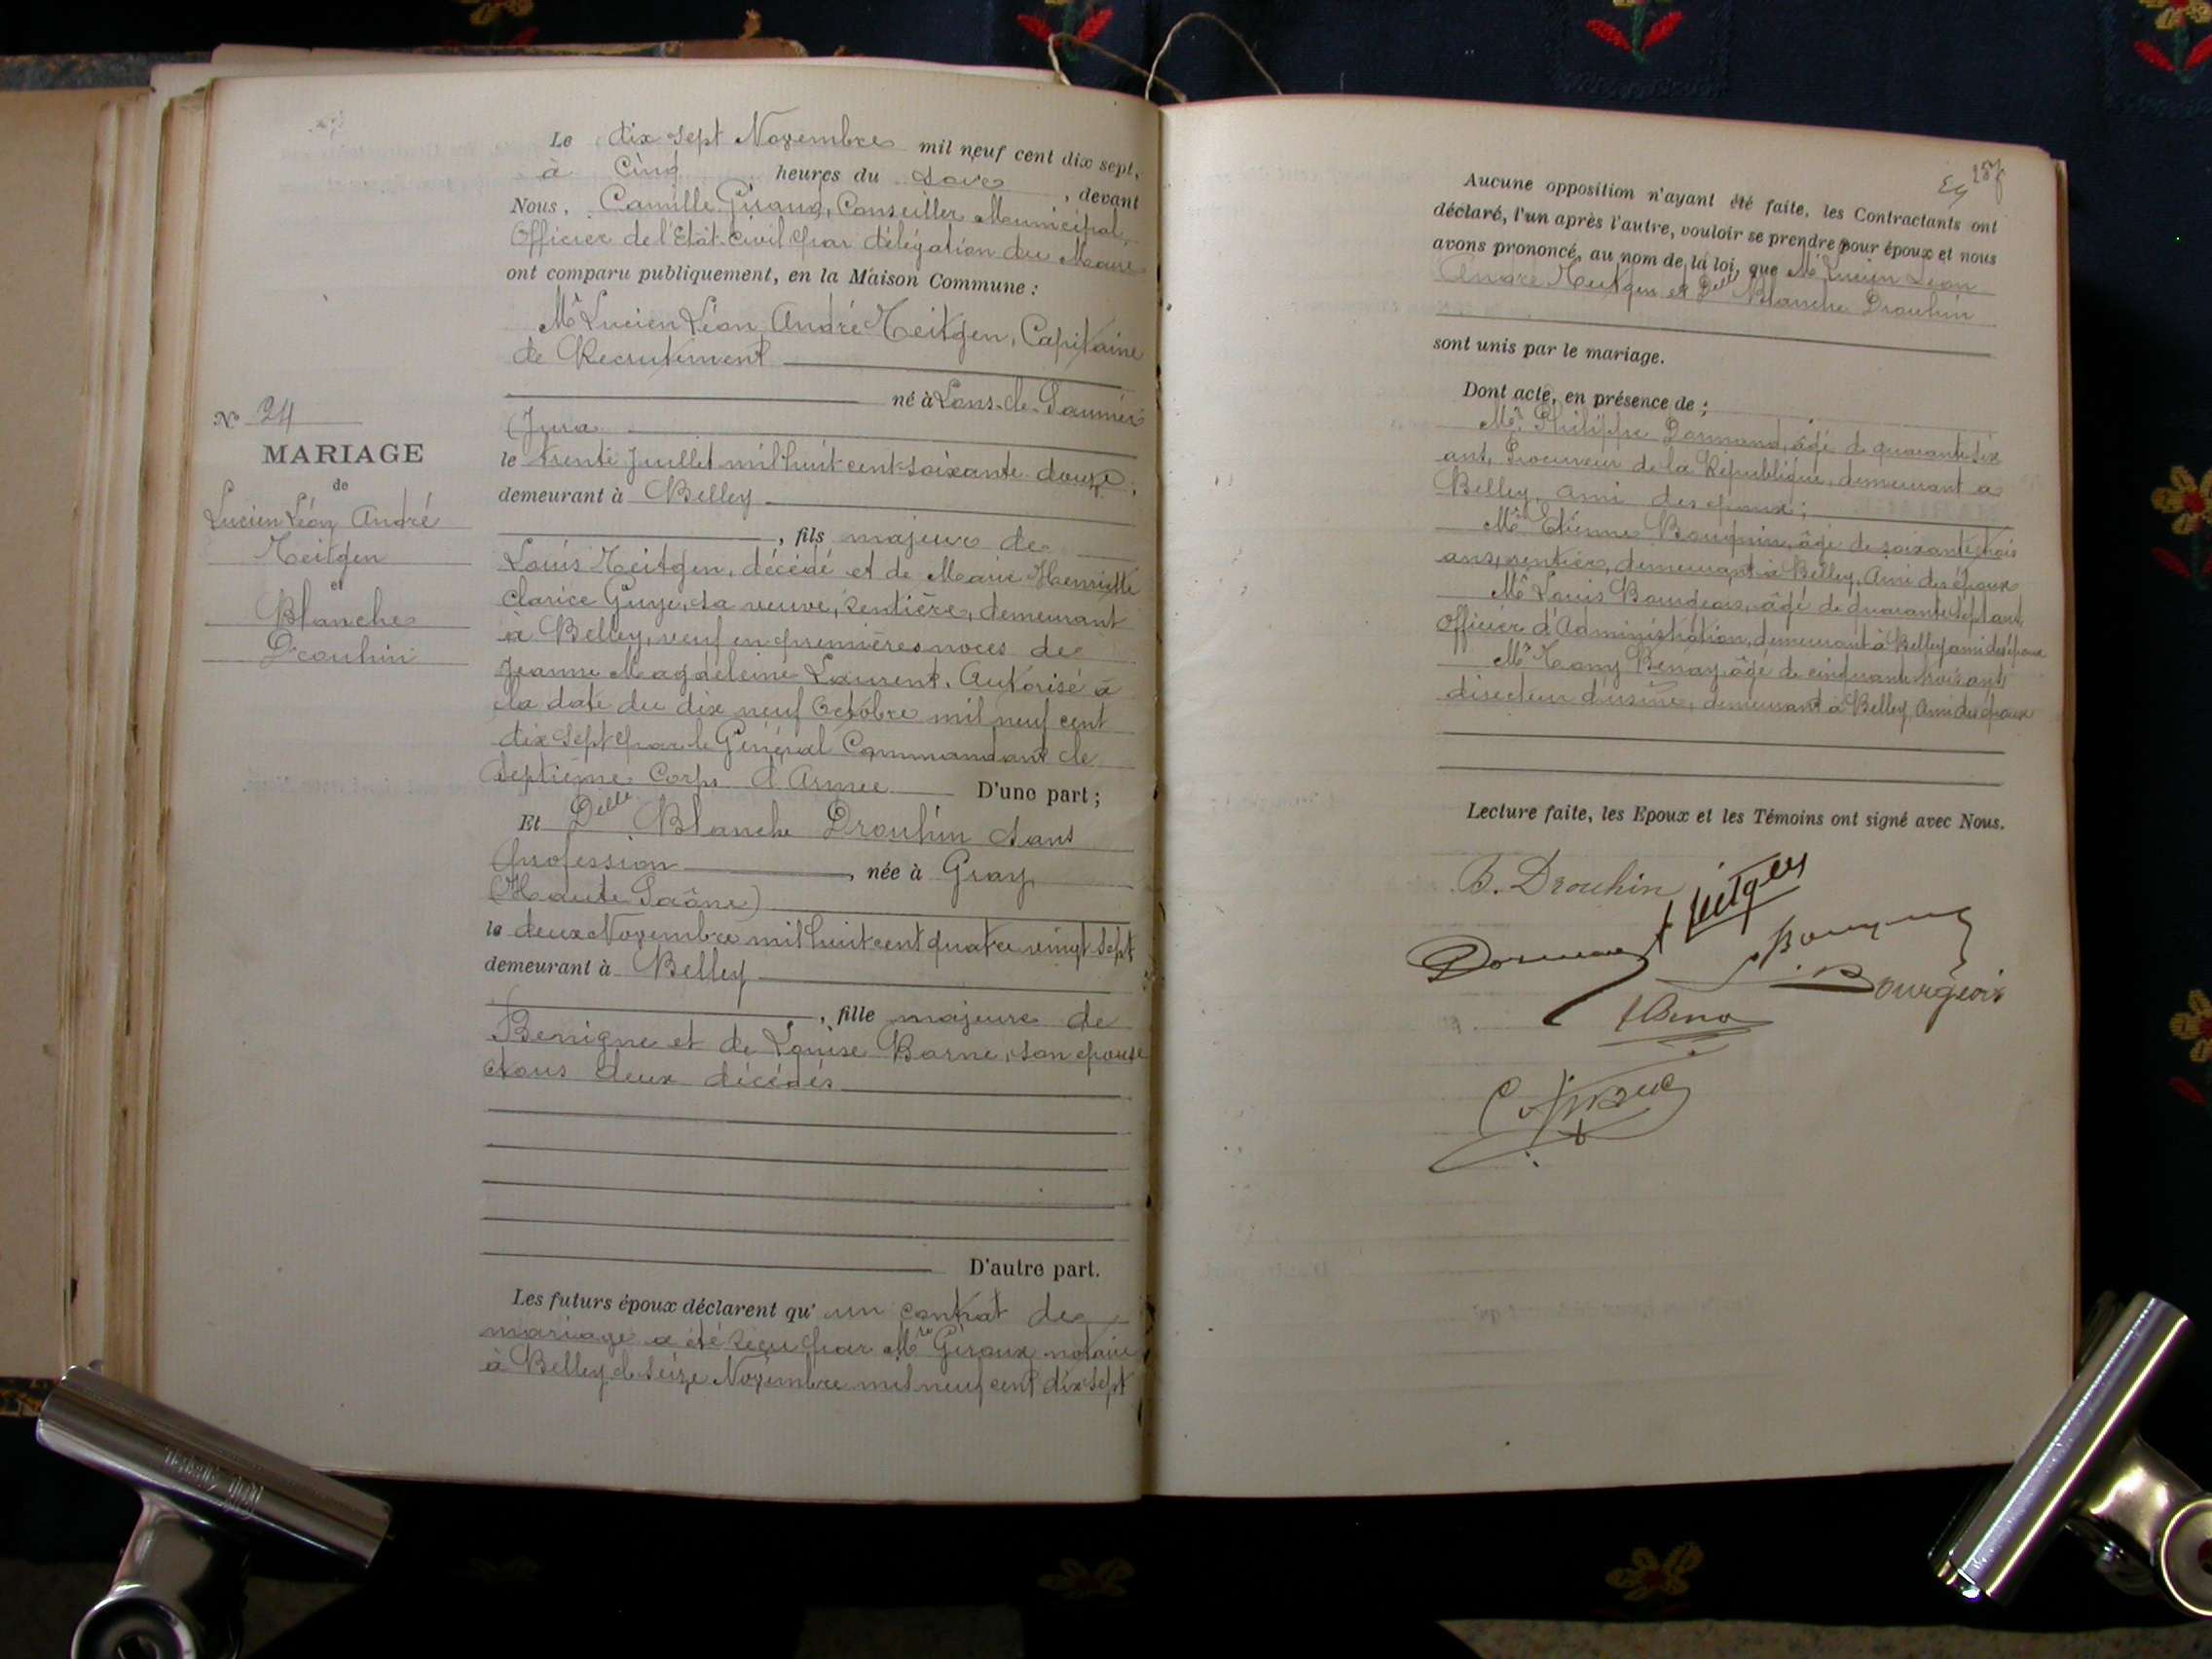 Le dix sept Novembre mil neuf cent dix sept,
à cinq heures du soir, devant
Nous, Camille Giraux, Conseiller Municipal,
Officier de l'Etat-Civil par délégation du Maire
ont comparu publiquement, en la Maison Commune :
Mr Lucien Léon André Teitgen, Capitaine
de Recrutement
né à Lons-le-Saunier
(Jura
le trente Juillet mil huit cent soixante douze,
demeurant à Belley
, fils majeur de
Louis Teitgen, décédé et de Marie Henriette
Clarice Guye, sa veuve, rentière, demeurant
à Belley, veuf en premières noces de
Jeanne Magdeleine Laurent. Autorisé à
la date du dix neuf Octobre mil neuf cent
dix sept par le Général Commandant le
Septième Corps d'Armée D'une part ;
Et Delle Blanche Drouhin sans
profession, née à Gray
(Haute Saône)
le deux Novembre mil huit cent quatre vingt sept
demeurant à Belley
, fille majeure de
Benigne et de Louise Barne, son épouse
tous deux décédés
D'autre part.
Les futurs époux déclarent qu' un contrat de
mariage a été reçu par Me Giraux notaire
à Belley le seize Novembre mil neuf cent dix sept
No 24
MARIAGE
de
Lucien Léon André
Teitgen
et
Blanche
Drouhin
Aucune opposition n'ayant été faite, les Contractants ont
déclaré, l'un après l'autre, vouloir se prendre pour époux et nous
avons prononcé, au nom de la loi, que Mr Lucien Léon
André Teitgen et Delle Blanche Drouhin
sont unis par le mariage.
Dont acte, en présence de ;
Mr Philippe Dormand, âgé de quarante six
ans, Procureur de la République, demeurant à
Belley, ami des époux ;
Mr Etienne Bouquin, âgé de soixante trois
ans, rentier, demeurant à Belley, Ami des époux
Mr Louis Bourgeois, âgé de quarante sept ans,
Officier d'Administration, demeurant à Belley ami des époux
Mr Tony Benay, âgé de cinquante trois ans
directeur d'usine, demeurant à Belley, Ami des époux
Lecture faite, les Epoux et les Témoins ont signé avec Nous.
B. Drouhin
Teitgen
Bourgeois